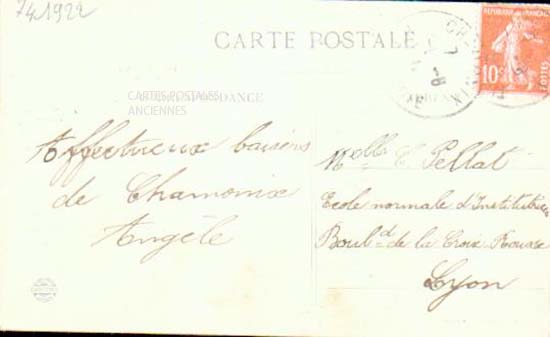 741922
CARTE POSTALE
CARTES POSTALES
ANCIENNES
RÉPUBLIQUE FRANÇAISE
10c
POSTES
Affectueux baisers
de Chamonix
Angèle
Melle C Pellat
Ecole normale d'Institutrices
Bould de la Croix-Rousse
Lyon